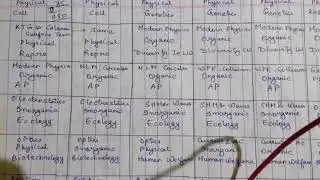 Physical
Cell
Physical
Cell
Physical
Genetics
Physical
Genetics
Modern Physics
Physical
Genetics
Physical
Repro
Same
Physical
Repro
Modern Physics
Organic
Diversity In LW
Modern Physics
Organic
Diversity In LW
Organic
Diversity
Modern Physics
Organic
AP
NLM, Circular
Organic
AP
NLM, Circular
Organic
AP
WPE, Collision
Organic
AP
WPE, Collision
Organic
AP
Electrostatics
Inorganic
Ecology
Electrostatics
Inorganic
Ecology
SHM & Waves
Inorganic
Ecology
SHM & Waves
Inorganic
Ecology
SHM & Wave
Inorganic
Ecology
Optics
Physical
Biotechnology
Optics
Inorganic
Biotechnology
Optics
Physical
Human Welfare
Current
Inorganic
Human Welfare
Inorganic
Human Welfare